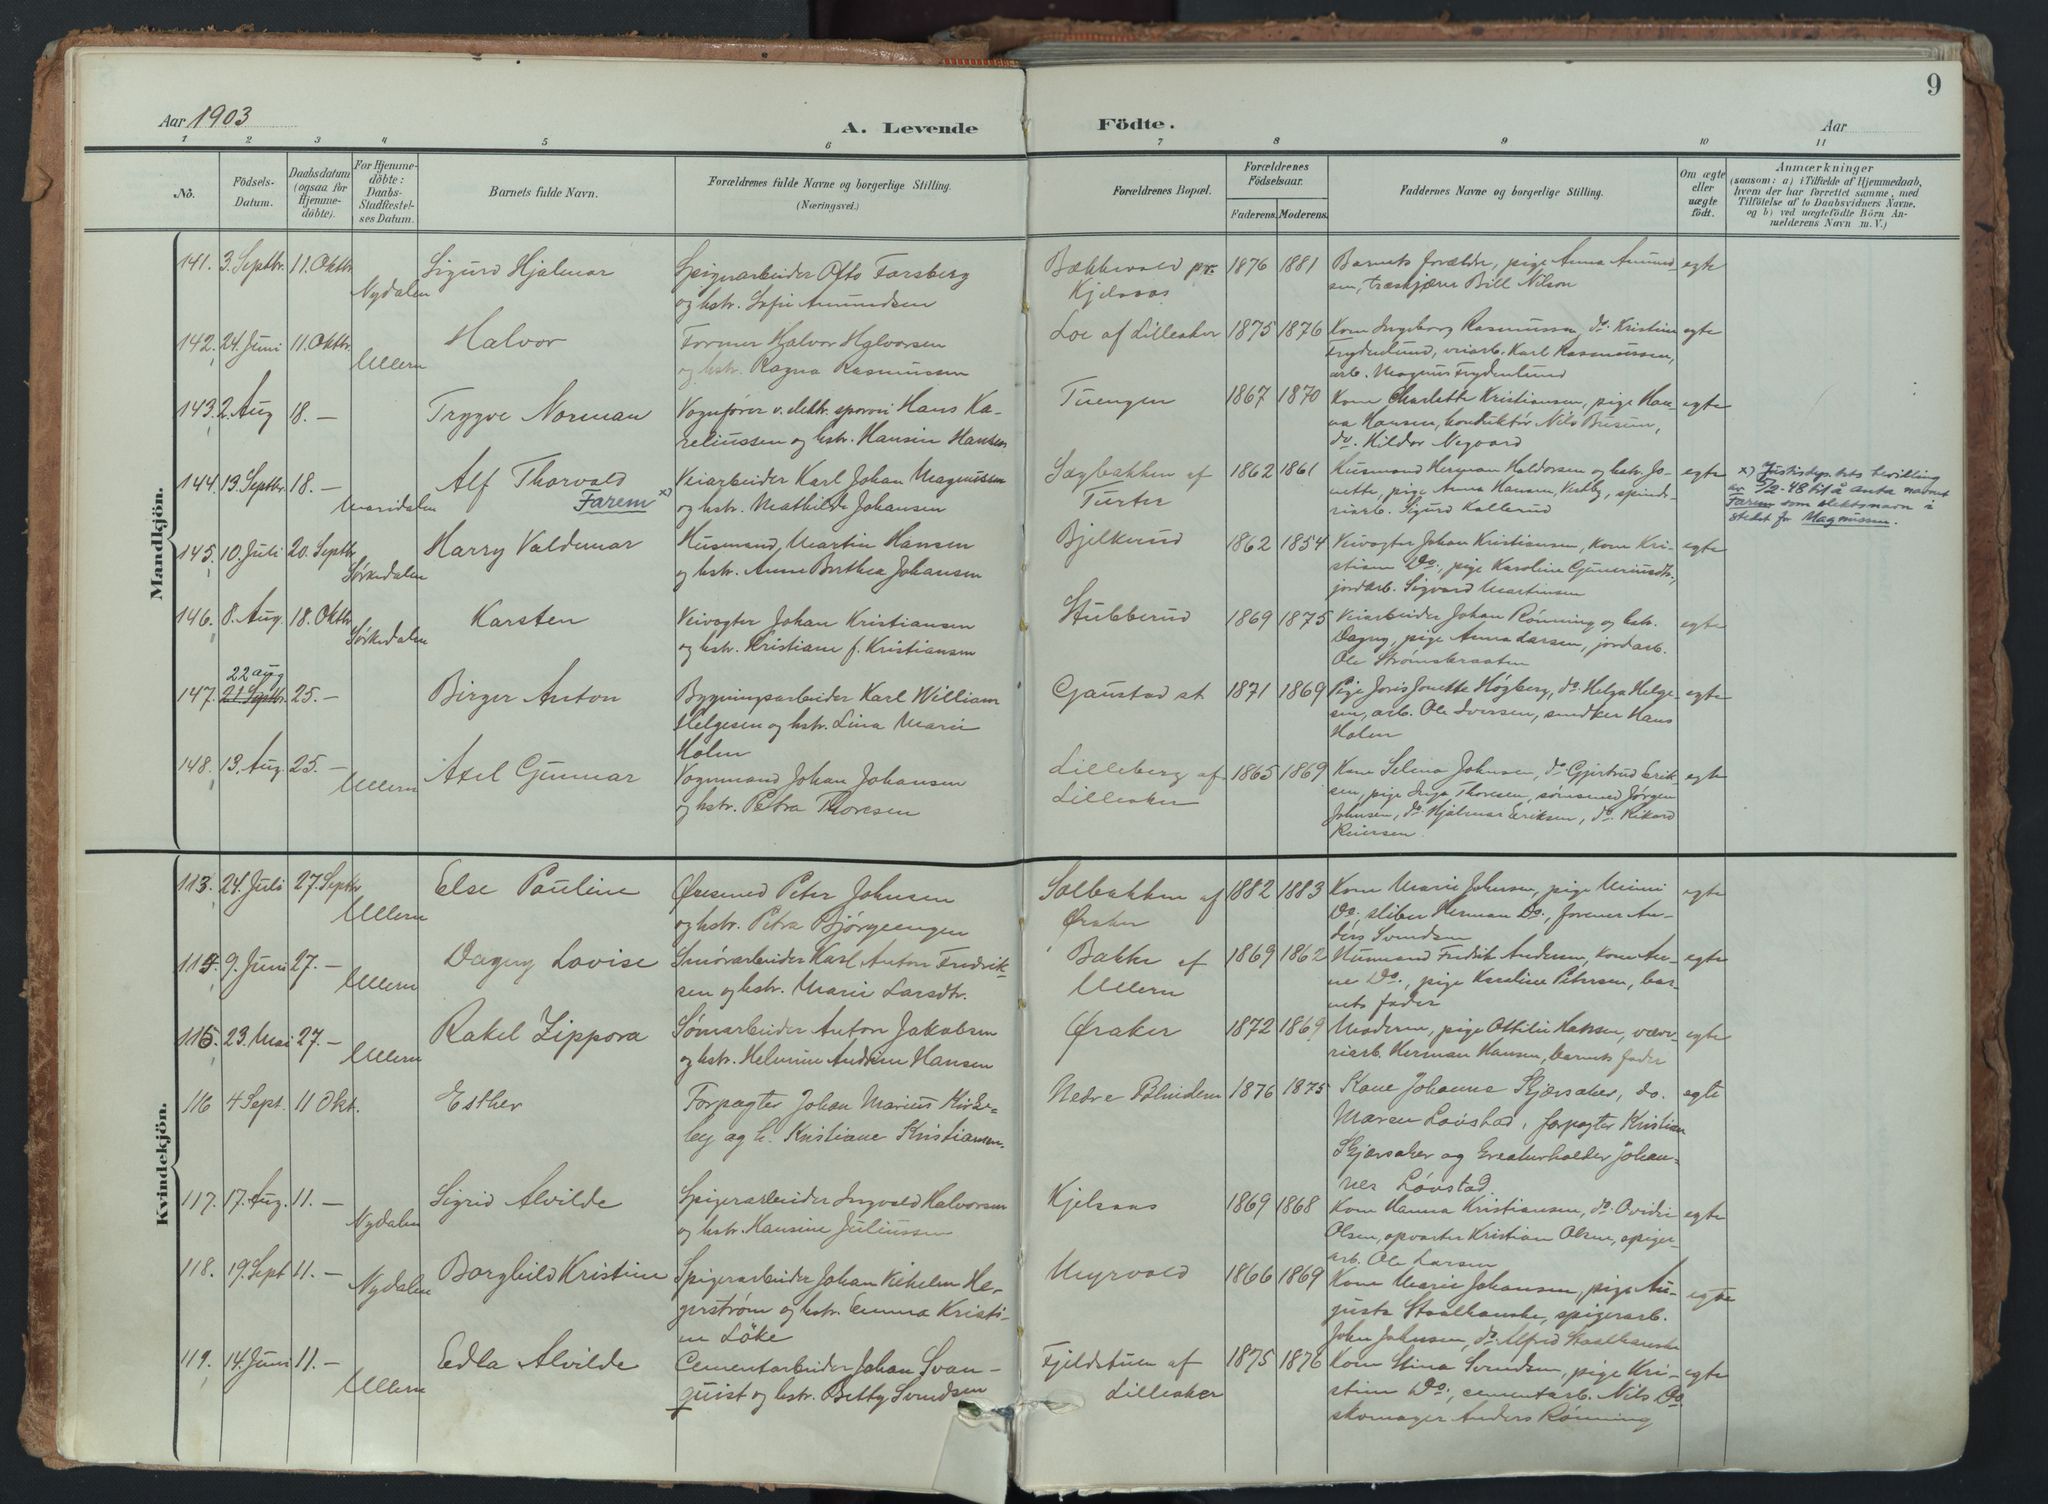 9
Aar 1903
A. Levende Födte.
Aar
1 2 3 4 5 6 7 8 9 10 11
No.
Födsels-Datum.
Daabsdatum (ogsaa for Hjemmedöbte).
For Hjemmedöbte: Daabs-Stadfæstelses Datum.
Barnets fulde Navn.
Forældrenes fulde Navne og borgerlige Stilling. (Næringsvei.)
Forældrenes Bopæl.
Forældrenes Födselsaar.
Faderens. Moderens.
Faddernes Navne og borgerlige Stilling.
Om ægte eller uægte födt.
Anmærkninger
(saasom: a) i Tilfælde af Hjemmedaab,
hvem der har forrettet samme, med
Tilföielse af to Daabsvidners Navne,
og b) ved uægtefödte Börn An-
melderens Navn m. V.)
Mandkjön.
141. 3. Septbr. 11. Oktbr. Nydalen Sigurd Hjalmar
Spigerarbeider Otto Forsberg
og hstr. Sofie Amundsen
Bækkevold pr.
Kjelsaas
1876 1881
Barnets forældre, pige Anna Amund-
sen, træskjærer Bill Nilson
egte
142. 24. Juni 11. Oktbr. Ullern Halvor
Former Halvor Halvorsen
og hstr. Ragna Rasmussen
Loe af Lilleaker
1875 1876
Kone Ingeborg Rasmussen, do. Kristine
Frydenlund, veiarb. Karl Rasmussen,
arb. Magnus Frydenlund
egte
143. 2. Aug 18. — Trygve Norman
Vognfører v. elektr. sporvei Hans Ka-
reliussen og hstr. Hansine Hansen
Tuengen
1867 1870
Kone Charlotte Kristiansen, pige Han-
na Hansen, konduktør Nils Busum,
do. Hildor Nygaard
egte
144. 13. Septbr. 18. — Maridalen Alf Thorvald
Farem x)
Veiarbeider Karl Johan Magnussen
og hstr. Mathilde Johansen
Sagbakken af
Turter
1862 1861
Husmand Herman Haldorsen og hstr. Jo-
nette, pige Anna Hansen, Vestby, spinde-
riarb. Sigurd Kallerud
egte
x) Justisdep.tets bevilling
av 5/2-48 til å anta navnet
Farem som slektsnavn i
stedet for Magnussen.
145. 10. Juli 20. Septbr. Sørkedalen Harry Valdemar
Husmand Martin Hansen
og hstr. Anne Berthea Johansen
Bjelkerud
1862 1854
Veivogter Johan Kristiansen, kone Kri-
stiane Do., pige Karoline Guneriusdtr.,
jordarb. Sigvard Martinsen
egte
146. 8. Aug. 18. Oktbr. Sørkedalen Karsten
Veivogter Johan Kristiansen
og hstr. Kristiane f. Kristiansen
Stubberud
1869 1875
Veiarbeider Johan Rønning og hstr.
Dagny, pige Anna Larsen, jordarb.
Ole Strømsbraaten
egte
22 aug
147. 21. Septbr. 25. — Birger Anton
Bygningsarbeider Karl William
Helgesen og hstr. Lina Marie
Holm
Gaustad st.
1871 1869
Pige Joris Jonette Høgberg, do. Helga Helge-
sen, arb. Ole Iversen, snedker Hans
Holm
egte
148. 13. Aug. 25. — Ullern Axel Gunnar
Vognmand Johan Johansen
og hstr. Petra Thoresen
Lilleberg af
Lilleaker
1865 1869
Kone Selina Johnsen, do. Gjertrud Erik-
sen, pige Inga Thoresen, sømsmed Jørgen
Johnsen, do. Hjalmar Eriksen, do. Rikard
Reiersen.
egte
Kvindekjön.
113. 24. Juli 27. Septbr. Ullern Else Pauline
Øxesmed Peter Johnsen
og hstr. Petra Bjørgeengen
Solbakken af
Øraker
1882 1883
Kone Marie Johnsen, pige Minni
Do., sliber Herman Do., former An-
ders Svendsen
egte
114. 9. Juni 27. — Ullern Dagny Lovise
Smørarbeider Karl Anton Fredrik-
sen og hstr. Marie Larsdtr.
Bakke af
Ullern
1869 1862
Husmand Fredrik Andersen, kone An-
ne Do., pige Karoline Petersen, bar-
nets fader
egte
115. 23. Mai 27. — Ullern Rakel Zippora
Sømarbeider Anton Jakobsen
og hstr. Helmine Andrine Hansen
Øraker
1872 1869
Moderen, pige Ottilie Hansen, væve-
riarb. Herman Hansen, barnets fader
egte
116 4 Sept. 11 Okt. Esther
Forpagter Johan Marius Kirke-
by og h. Kristiane Kristiansen
Nedre Blindern
1876 1875
Kone Johanne Skjørsaker, do.
Maren Løvstad, forpagter Kristian
Skjørsaker og Kreaturholder Johan-
nes Løvstad
egte
117. 17. Aug. 11. — Nydalen Sigrid Alvilde
Spigerarbeider Ingvald Halvorsen
og hstr. Hansine Juliussen
Kjelsaas
1869 1868
Kone Hanna Kristiansen, do. Ovidie
Olsen, opvarter Kristian Olsen, spiger-
arb. Ole Larsen
egte
118. 19. Sept 11. — Nydalen Borghild Kristine
Spigerarbeider Johan Vilhelm He-
gerstrøm og hstr. Emma Kristi-
ne Löke
Myrvold
1866 1869
Kone Marie Johansen, pige Au-
gusta Staalhanske, spigerarb.
John Johnsen, do. Alfred Staalhanske
egte
119. 14. Juni 11. — Ullern Edla Alvilde
Cementarbeider Johan Svan-
quist og hstr. Betty Svendsen
Fjeldstuen af
Lilleaker
1875 1876
Kone Stina Svendsen, pige Kri-
stine Do., cementarb. Nils Do.
skomager Anders Rønning
egte